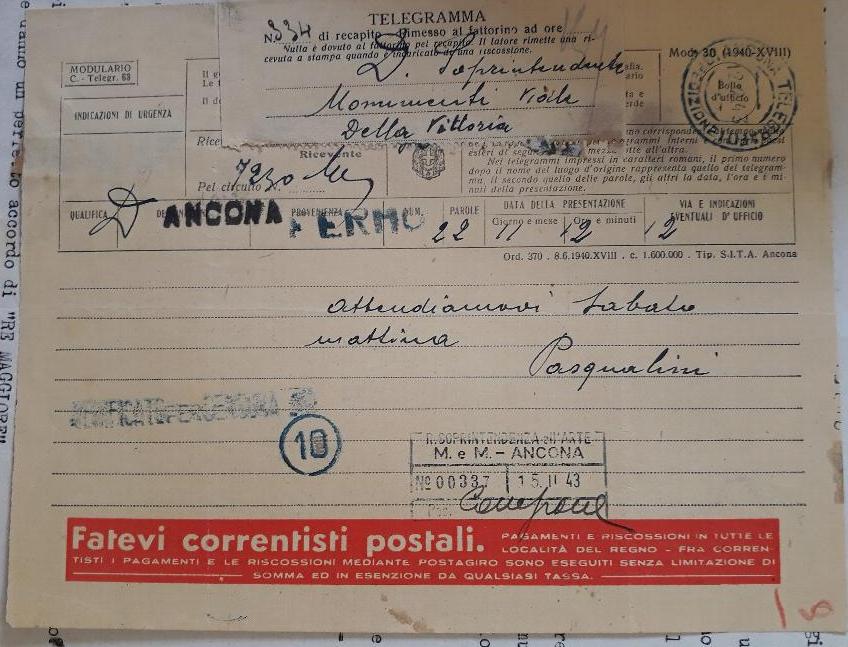 TELEGRAMMA
N. 334 di recapito Rimesso al fattorino ad ore
Nulla è dovuto al fattorino pel recapito. Il latore rimette una ri-
cevuta a stampa quando è incaricato di una riscossione.
D. Soprintendente
Monumenti Viale
Della Vittoria
MODULARIO
C. - Telegr. 68
Mod. 30 (1940-XVIII)
INDICAZIONI DI URGENZA
Bollo
d'ufficio
Ricevente
Pel circuito N. 7230
Nei telegrammi impressi in caratteri romani, il primo numero
dopo il nome del luogo d'origine rappresenta quello del telegram-
ma, il secondo quello delle parole, gli altri la data, l'ora e i mi-
nuti della presentazione.
QUALIFICA D ANCONA PROVENIENZA FERMO NUM. PAROLE 22 DATA DELLA PRESENTAZIONE VIA E INDICAZIONI
Giorno e mese 11 Ore e minuti 12 12 EVENTUALI D'UFFICIO
Ord. 370 - 8.6.1940.XVIII - c. 1.600.000 - Tip. S.I.T.A. Ancona
Attendiamovi Sabato
mattina
Pasqualini
VERIFICATO PER CENSURA
10
R. SOPRINTENDENZA all'ARTE
M. e M. - ANCONA
Nº 00337 15. II 43
Fatevi correntisti postali. PAGAMENTI E RISCOSSIONI IN TUTTE LE
LOCALITÀ DEL REGNO - FRA CORREN-
TISTI I PAGAMENTI E LE RISCOSSIONI MEDIANTE POSTAGIRO SONO ESEGUITI SENZA LIMITAZIONE DI
SOMMA ED IN ESENZIONE DA QUALSIASI TASSA.